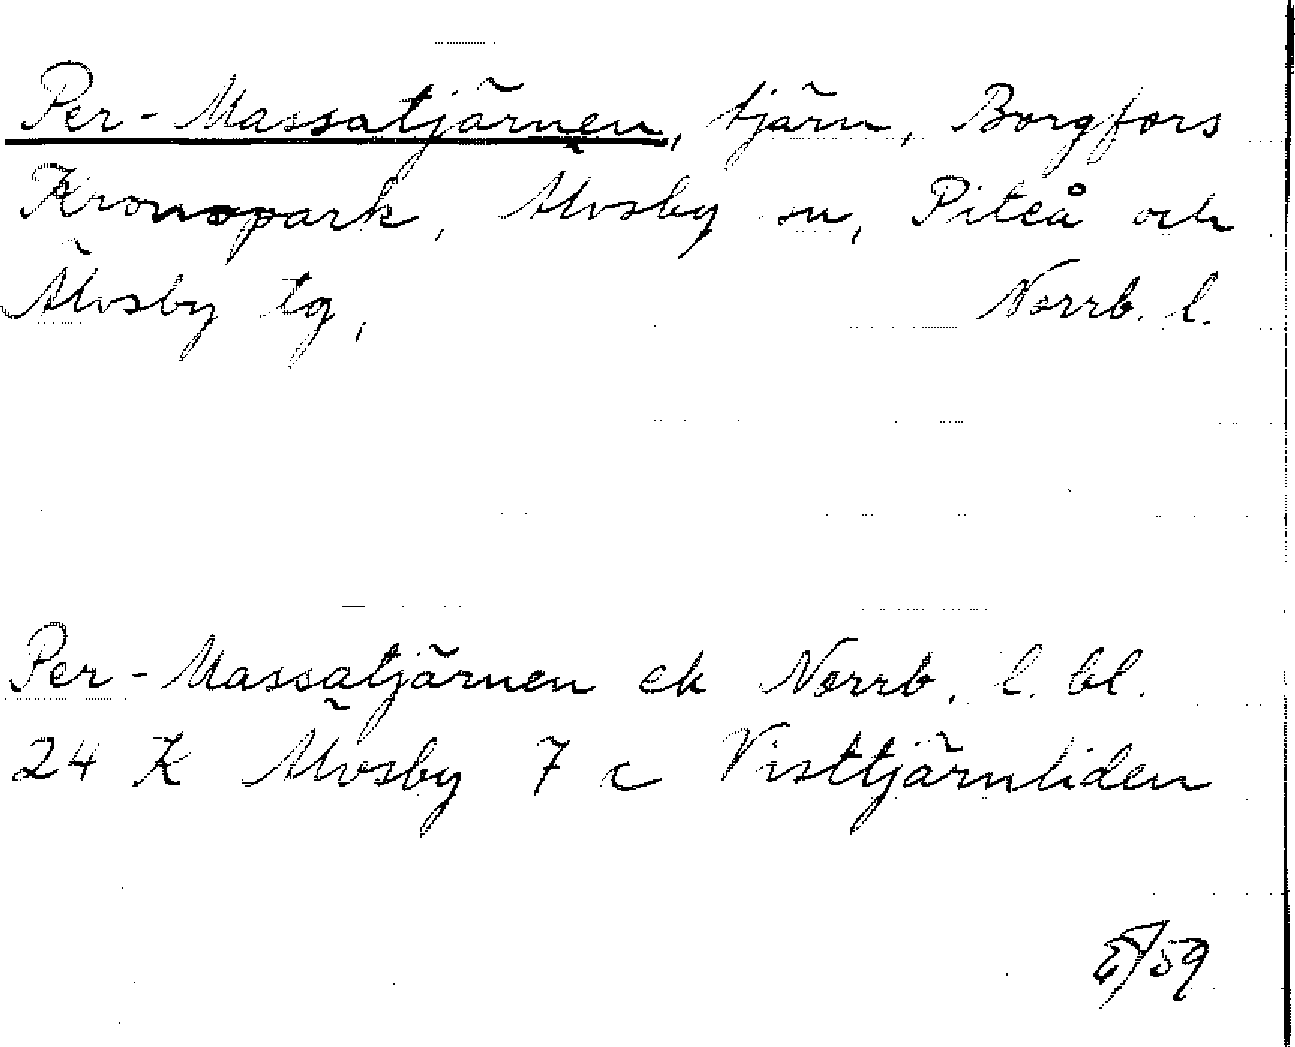 Per-Massatjärnen, tjärn, Borgfors
Kronopark, Älvsby sn, Piteå och
Älvsby tg, Norrb. l.
Per-Massatjärnen ek Norrb. l. bl.
24 K Älvsby 7 c Visttjärnliden
/59